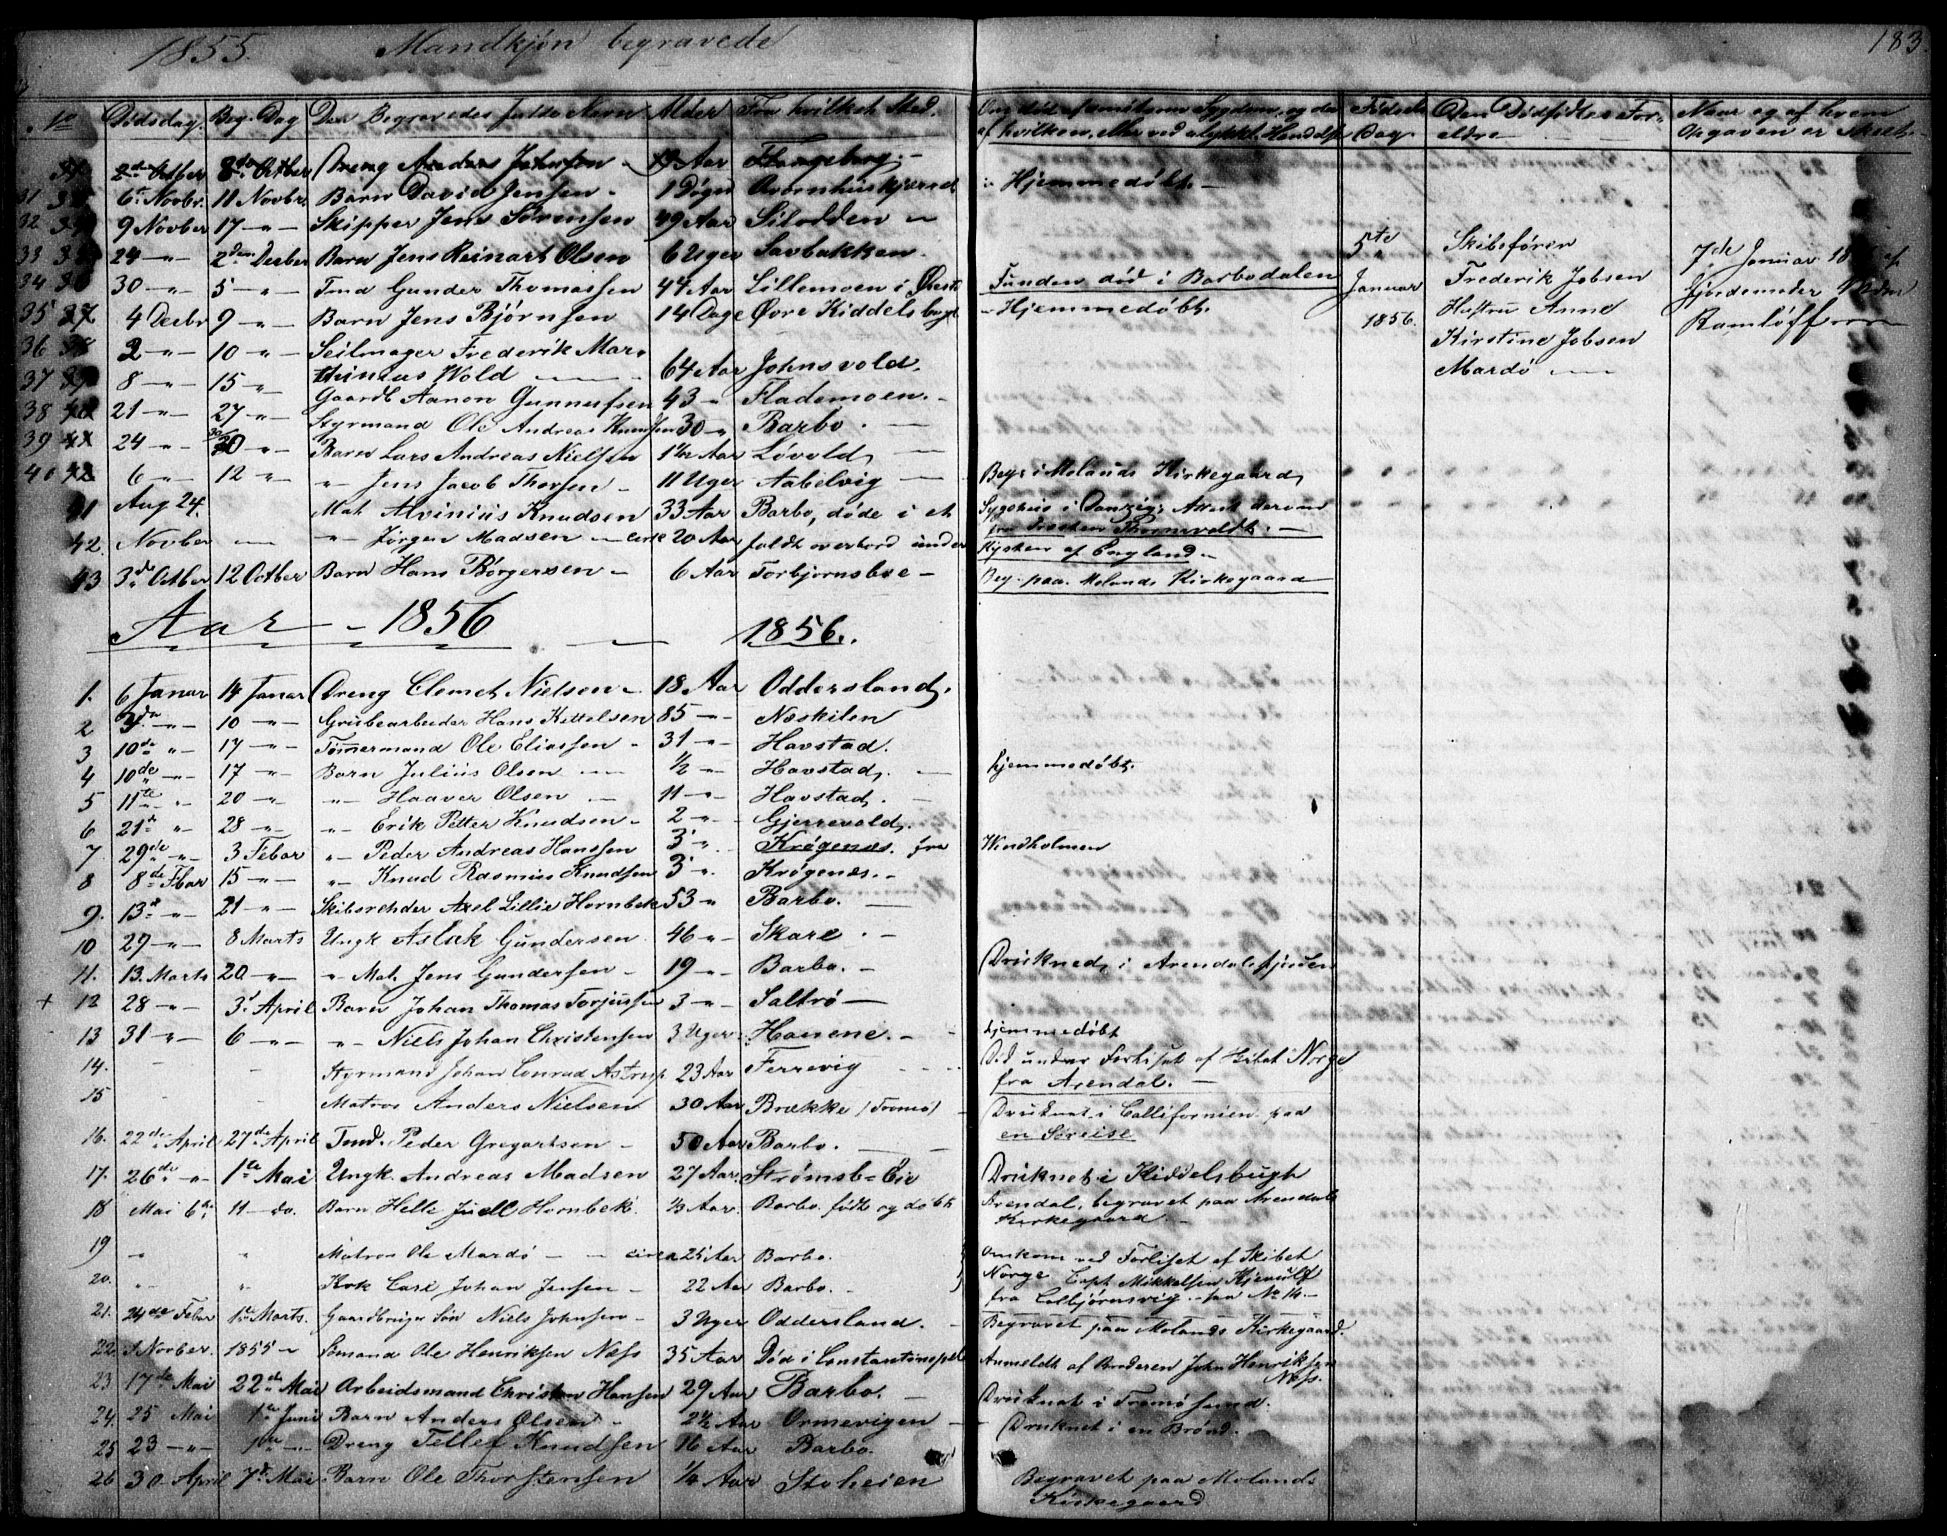 1855. Mandkjøn begravede
183.
No Dødsdag. Beg. Dag Den Begravedes fulde Navn Alder Fra hvilket Sted. Om død af smitsom Sygdom, og da af hvilken, eller ved ulykkl. Hændelse Fødsels Dag Den Dødfødtes Forældre Naar og af hvem Opgaven er skeet
8de Octber Dreng Anders Jahnsen Aar Flangeborg.
31 6te Novbr. 11 Novbr. Barn David Jensen 1 Døgn Ravnhuskjerret Hjemmedøbt.
32 9 Novber 17 -"- Skipper Jens Sørensen 49 Aar Silodden
33 24 -"- 2den Decber Barn Jens Reinart Olsen 6 Uger Savbakken.
34 30 -"- 5 -"- Tmd Gunder Thomassen 44 Aar Lillemoen i Øiest. Funden død i Barbodalen
35 4 Decbr 9 -"- Barn Jens Bjørnsen 14 Dage Øvre Kiddelsbugt - Hjemmedøbt.
36 2 -"- 10 -"- Seilmager Frederik Marthinius Wold 64 Aar Johnsvold.
37 8 -"- 15 -"- Gaardb Aanon Gunnufsen 43 -"- Flademoen.
38 21 -"- 27 -"- Styrmand Ole Andreas Knudsen 30 -"- Barbo.
39 24 -"- 30 -"- Barn Lars Andreas Nielsen 1½ Aar Løvold
40 6 -"- 12 -"- -"- Jens Jacob Thorsen 11 Uger Aabelvig Begr. i Molands Kirkegaard
41 Aug 24. Mat Alvinius Knudsen 33 Aar Barbo, døde i et Sygehus i Danzig; Attest derom fra Presten Thornwaldt.
42. Novber -"- Jørgen Madsen - cirk 20 Aar faldt overbord under Kysten af England.
43 3de Octber 12 Octber Barn Hans Børgersen 6 Aar Torbjørnsboe - Beg. paa Molands Kirkegaard
5te Januar 1856. Skibsfører Frederik Jobsen Hustru Anne Kirstine Jobsen Mardø
7de Januar 18 af Gjordemoder Ramløff
Aar - 1856 1856.
1. 6 Januar 14 Januar Dreng Clemet Nielsen 18 Aar Oddersland.
2 3de -"- 10 -"- Grubearbeider Hans Kittelsen 85 -"- Næskilen
3 10de -"- 17 -"- Tømmermand Ole Eliassen 31 -"- Havstad.
4 10de -"- 17 -"- Barn Julius Olsen ½ -"- Havstad. hjemmedøbt.
5 11te -"- 20 -"- -"- Haaver Olsen 11 -"- Havstad.
6 21de -"- 28 -"- -"- Erik Petter Knudsen 2 -"- Gjerrevold.
7. 29de -"- 3 Febar -"- Peder Andreas Hanssen 3 -"- Krøgenæs. fra Windholmen
8 8de Fbar 15 -"- -"- Knud Rasmus Knudsen 3 -"- Krøgenæs.
9. 13de -"- 21 -"- Skibsrehder Axel Lillie Hornbek 53 -"- Barbo.
10 29 -"- 8 Marts Ungk Aslak Gundersen 46 -"- Skare.
11. 13. Marts 20 -"- -"- Mat. Jens Gundersen 19 -"- Barbo. Druknede i Arendalsfjorden
+ 12 28 -"- 3' April Barn Johan Thomas Torjussen 3 -"- Saltrø
13 31 -"- 6 -"- -"- Niels Johan Christensen 3 Uger Hanene. hjemmedøbt
14. Styrmand Johan Conrad Astrup 23 Aar Ferrevig Død under Forliset af Skibet Norge fra Arendal.
15 Matros Anders Nielsen 30 Aar Brække (Tromø) Druknet i Callifornien paa en Søreise
16. 22de April 27de April Tmd. Peder Gregartsen 50 Aar Barbo.
17. 26de -"- 1te Mai Ungk Andreas Madsen 27 Aar. Strømsb-Eie Druknet i Kiddelsbugt
18 Mai 6te 11 - do. Barn Helle Juell Hornbek. ⅓ Aar. Barbo. født og døbt Arendal, begravet paa Arendals Kirkegaard.
19 " " Matros Ole Mardø - circa 25 Aar Barbo. Omkom ved Forliset af Skibet
20. " " Kok Carl Johan Jensen 22 Aar Barbo. Norge Capt. Mikkelsen Kjenulf fra Colbjørnsvig. - saa No 14.
21. 24de Febar 1te Marts. Gaardbruger Søn Niels Johnsen 3 Uger Oddersland. Begravet paa Molands Kirkegaard.
22. 1 Novber. 1855 - Sømand Ole Henriksen Næss 35 Aar Død i Constantinopel Anmeldt af Broderen John Henriksen Næss.
23 17de Mai 22de Mai Arbeidsmand Christen Hansen 29 Aar Barbo. Druknet i Tromøsund.
24. 25 Mai 1te Juni Barn Anders Olsen 2½ Aar Ormevigen - Druknet i en Brønd.
25 23 -"- 1te -"- Dreng Tellef Knudsen 16 Aar Barbo.
26 30 April 7de Mai Barn Ole Thorstensen ¼ Aar Stoheien Begravet paa Molands Kirkegaard